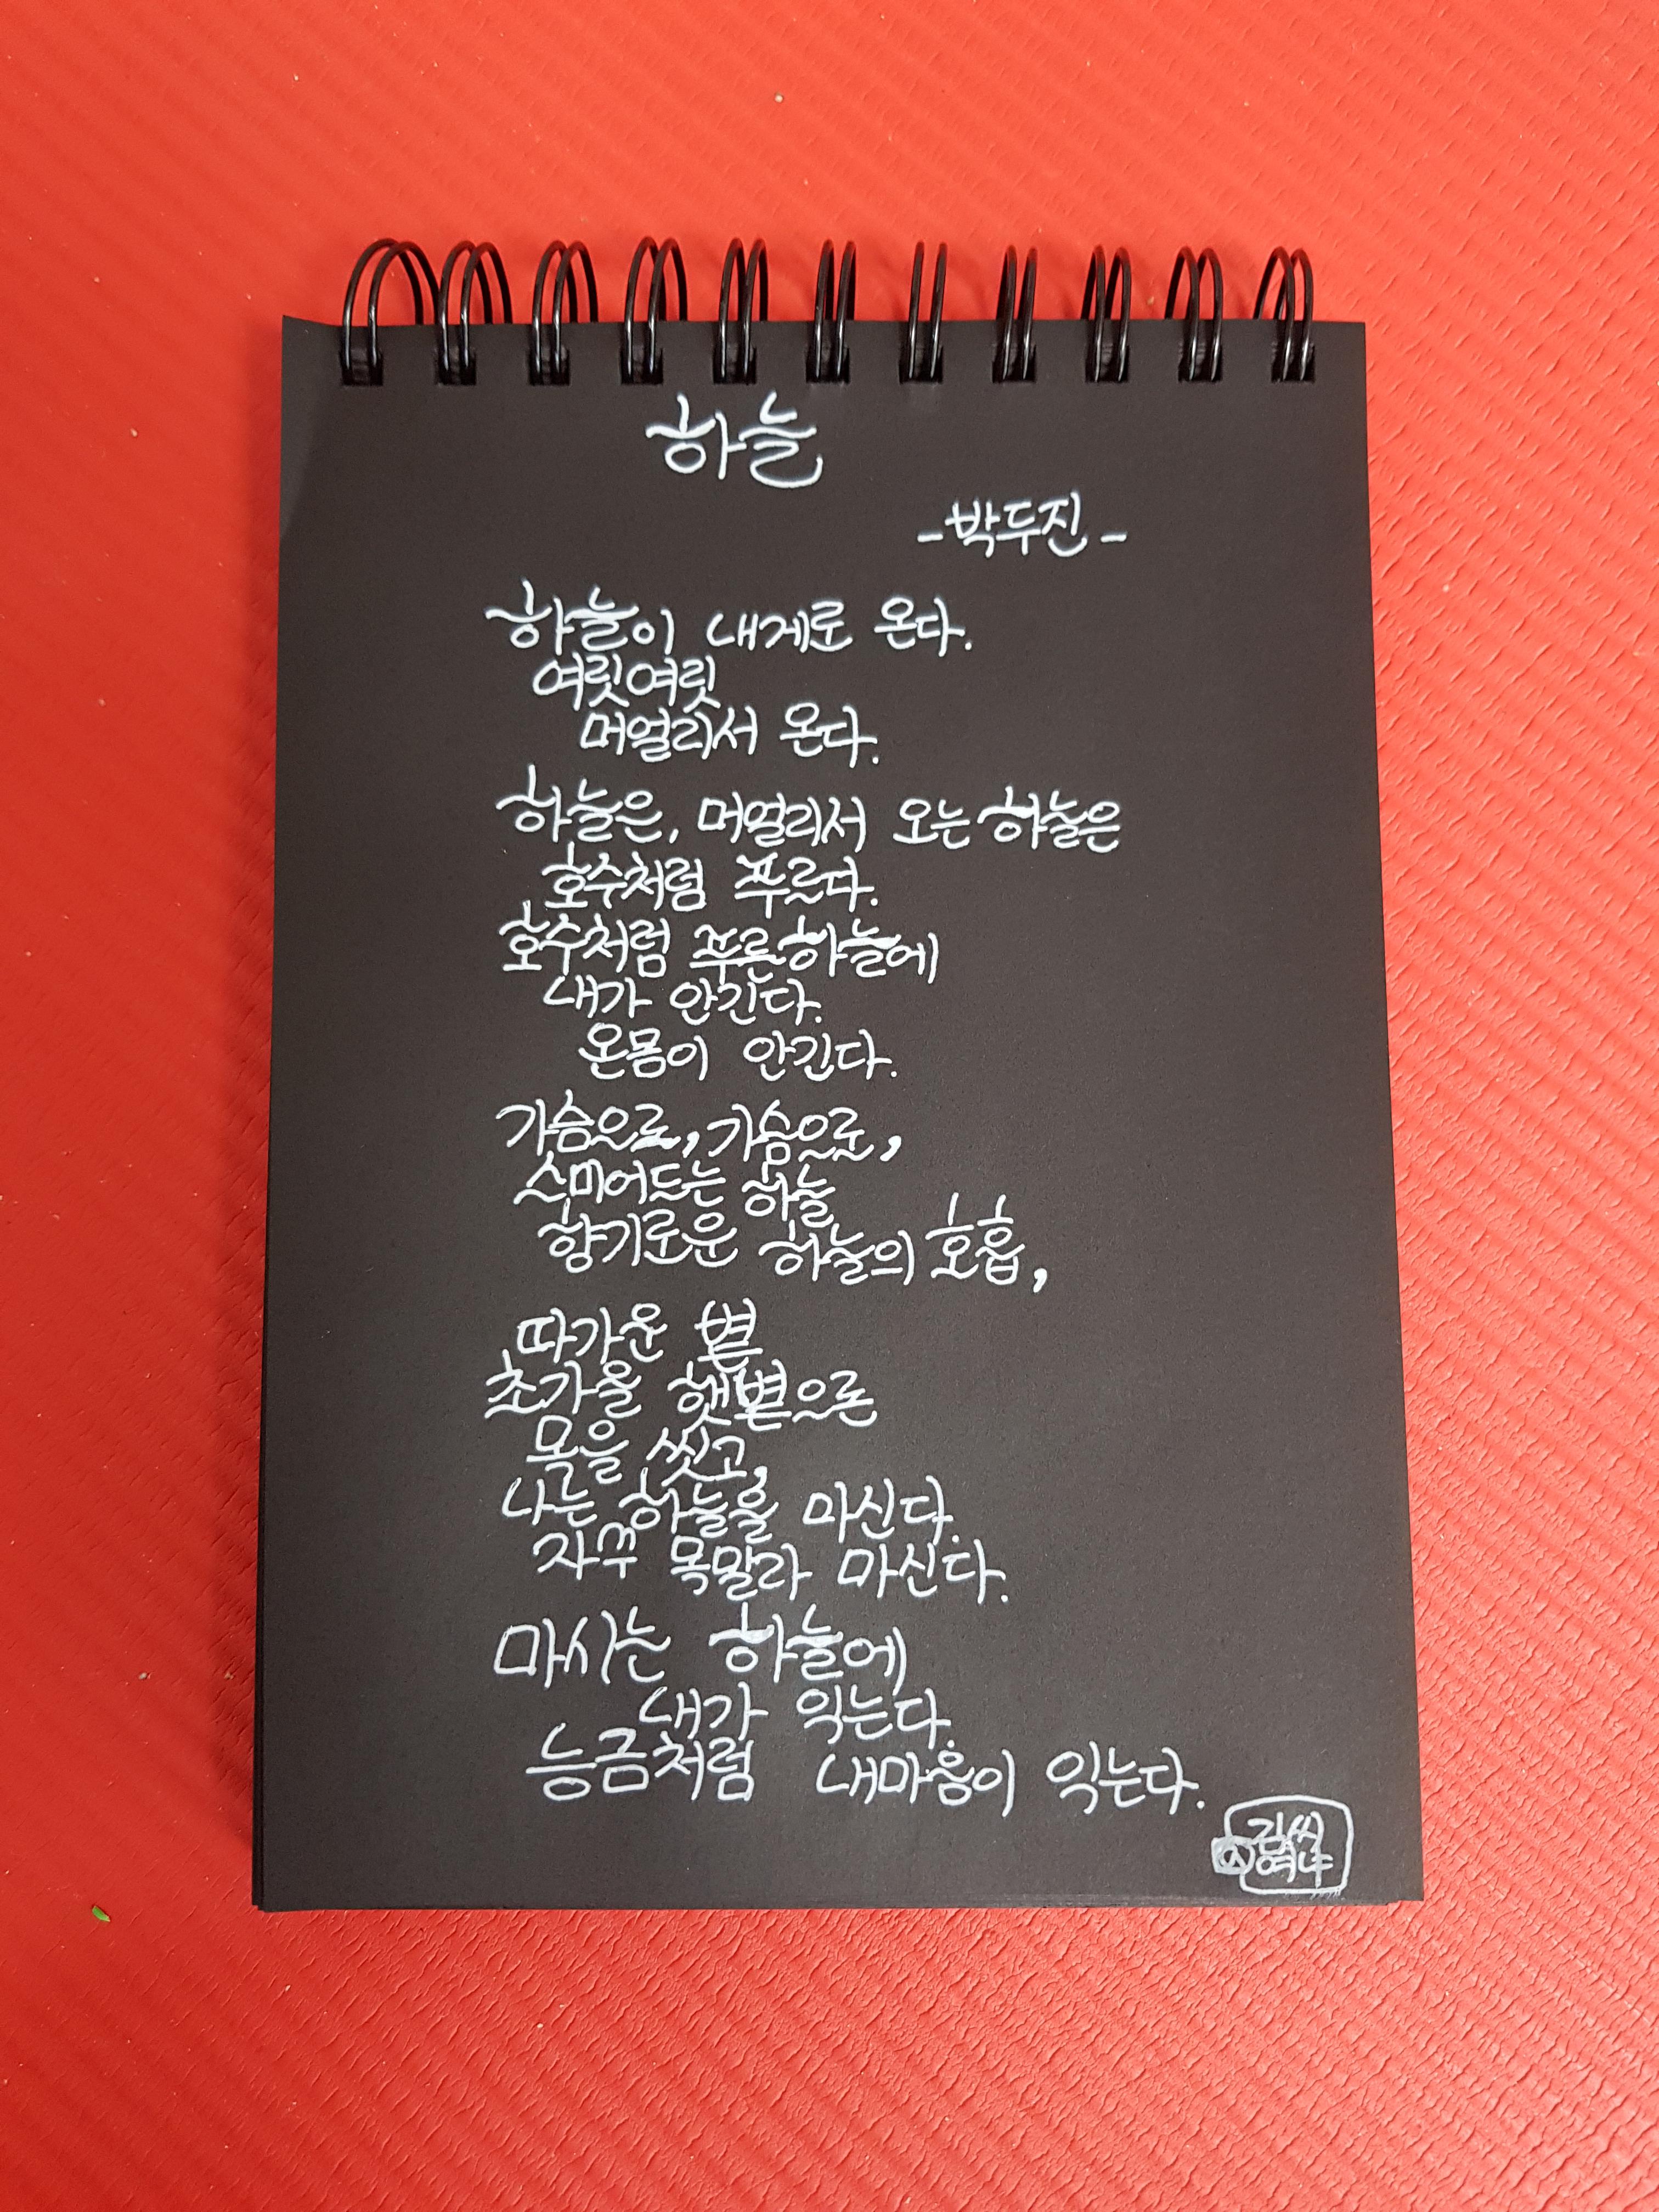 하늘
-박두진-
하늘이 내게로 온다.
여릿여릿
머얼리서 온다.
하늘은, 머얼리서 오는 하늘은
호수처럼 푸르다.
호수처럼 푸른 하늘에
내가 안긴다.
온몸이 안긴다.
가슴으로, 가슴으로,
스미어드는 하늘
향기로운 하늘의 호흡,
따가운 볕
초가을 햇볕으론
목을 씻고,
나는 하늘을 마신다.
자꾸 목말라 마신다.
마시는 하늘에
내가 익는다.
능금처럼 내마음이 익는다.
김씨
여나